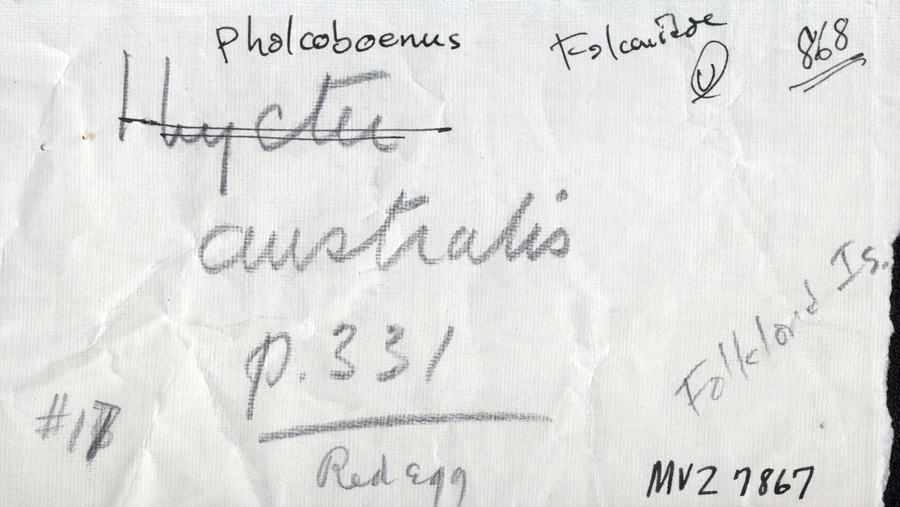 Phalcoboenus Falconidae 868
U
Hycter
australis
Falkland Is.
p. 331
#17
Red egg
MVZ 7867